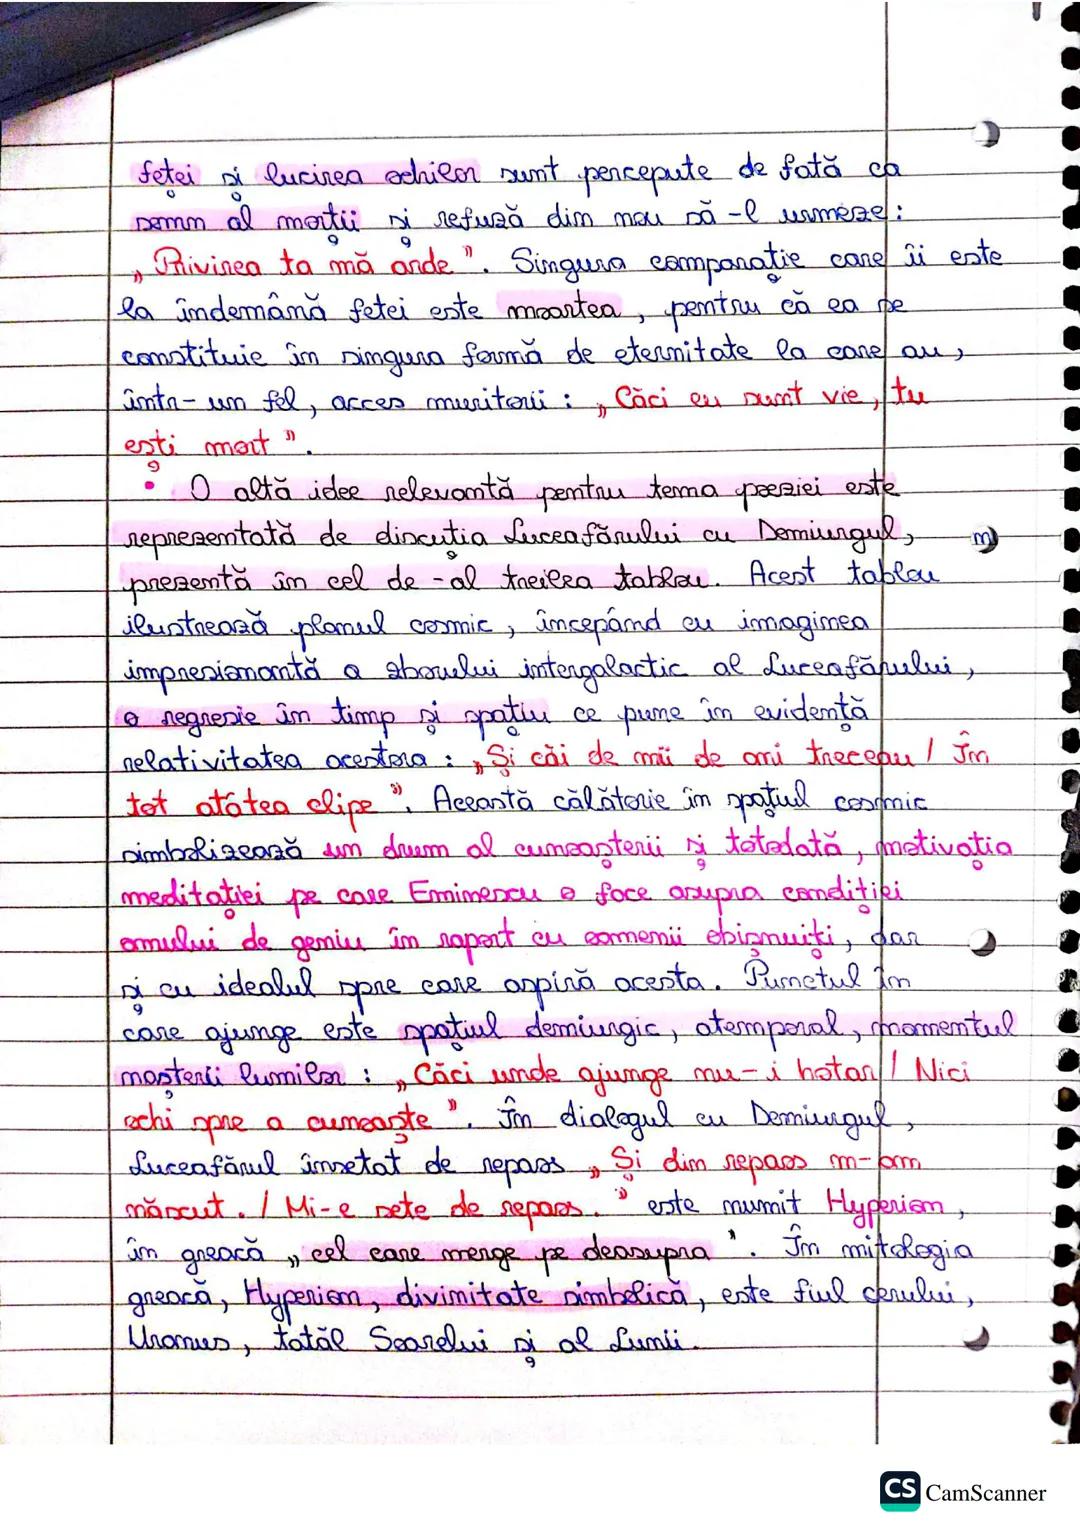 feței și lucirea ochilor sunt percepute de fată ca
semn al morții și refuză din nou să-l urmeze:
„Privirea ta mă arde". Singura comparație care îi este
la îndemână fetei este moartea, pentru că ea se
constituie în singura formă de eternitate la care au,
într-un fel, acces muritorii: „Căci eu sunt vie, tu
ești mort".
• O altă idee relevantă pentru tema poeziei este
reprezentată de discuția Luceafărului cu Demiurgul,
prezentă în cel de-al treilea tablou. Acest tablou
ilustrează planul cosmic, începând cu imaginea
impresionantă a zborului intergalactic al Luceafărului,
o regresie în timp și spațiu ce pune în evidență
relativitatea acestora: „Și căi de mii de ani treceau / În
tot atâtea clipe". Această călătorie în spațiul cosmic
simbolizează un drum al cunoașterii și totodată, motivația
meditației pe care Eminescu o face asupra condiției
omului de geniu în raport cu oamenii obișnuiți, dar
și cu idealul spre care aspiră acesta. Punctul în
care ajunge este spațiul demiurgic, atemporal, momentul
nașterii lumilor: „Căci unde ajunge nu-i hotar / Nici
ochi spre a cunoaște". În dialogul cu Demiurgul,
Luceafărul însetat de repaos „Și din repaos m-am
născut. / Mi-e sete de repaos." este numit Hyperion,
în greacă „cel care merge pe deasupra". În mitologia
greacă, Hyperion, divinitate simbolică, este fiul cerului,
Uranus, tatăl Soarelui și al Lunii.
CS CamScanner